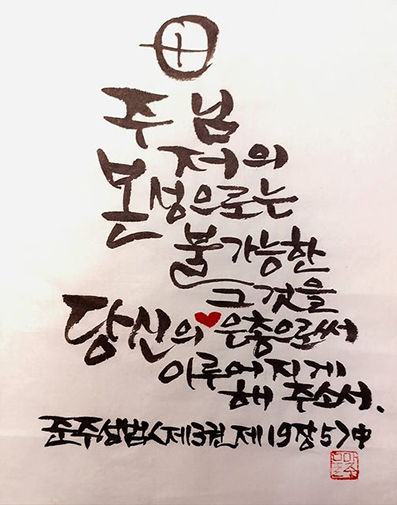 주님
저의
본성으로는
불가능한
그것을
당신의 은총으로써
이루어지게
해 주소서.
준주성범<제3권 제19장5>中